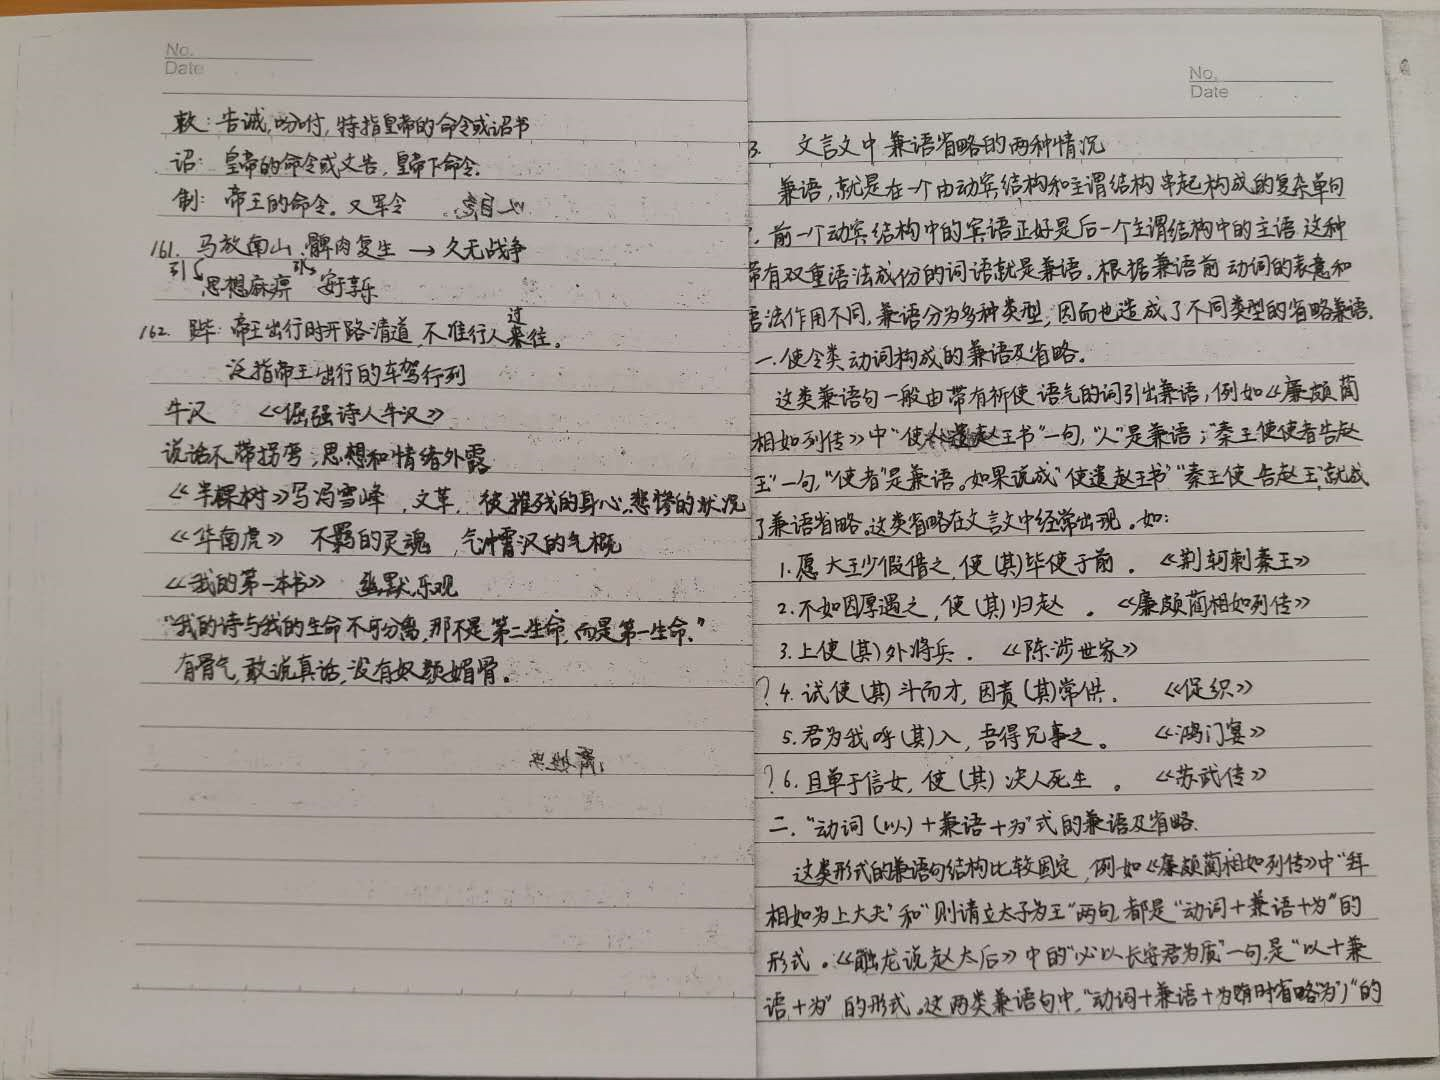 No.
Date
敕：告诫，吩咐，特指皇帝的命令或诏书
诏：皇帝的命令或文告，皇帝下命令.
制：帝王的命令。又军令
161. 马放南山，髀肉复生 → 久无战争
引 思想麻痹 安于享乐
过
162. 跸：帝王出行时开路清道，不准行人来往。
泛指帝王出行的车驾行列
牛汉 《倔强诗人牛汉》
说话不带拐弯；思想和情绪外露
《半棵树》写冯雪峰，文革，被摧残的身心，悲惨的状况
《华南虎》 不羁的灵魂，气冲霄汉的气概
《我的第一本书》 幽默，乐观
"我的诗与我的生命不可分离，那不是第二生命，而是第一生命."
有骨气，敢说真话，没有奴颜媚骨。
No.
Date
3. 文言文中兼语省略的两种情况
兼语，就是在一个由动宾结构和主谓结构串起构成的复杂单句
，前一个动宾结构中的宾语正好是后一个主谓结构中的主语，这种
带有双重语法成份的词语就是兼语。根据兼语前动词的表意和
语法作用不同，兼语分为多种类型，因而也造成了不同类型的省略兼语.
一.使令类动词构成的兼语及省略。
这类兼语句一般由带有祈使语气的词引出兼语，例如《廉颇蔺
相如列传》中"使人遗赵王书"一句，"人"是兼语；"秦王使使者告赵
王"一句，"使者"是兼语。如果说成"使遗赵王书""秦王使告赵王"，就成
了兼语省略。这类省略在文言文中经常出现。如：
1.愿大王少假借之，使(其)毕使于前。 《荆轲刺秦王》
2.不如因厚遇之，使(其)归赵。 《廉颇蔺相如列传》
3.上使(其)外将兵。 《陈涉世家》
? 4.试使(其)斗而才，因责(其)常供. 《促织》
5.君为我呼(其)入，吾得兄事之。 《鸿门宴》
? 6.且单于信女，使(其)决人死生。 《苏武传》
二."动词(以)+兼语+为"式的兼语及省略.
这类形式的兼语句结构比较固定，例如《廉颇蔺相如列传》中"拜
相如为上大夫"和"则请立太子为王"两句，都是"动词+兼语+为"的
形式。《触龙说赵太后》中的"必以长安君为质"一句，是"以+兼
语+为"的形式。这两类兼语句中，"动词+兼语+为(有时省略'为')"的